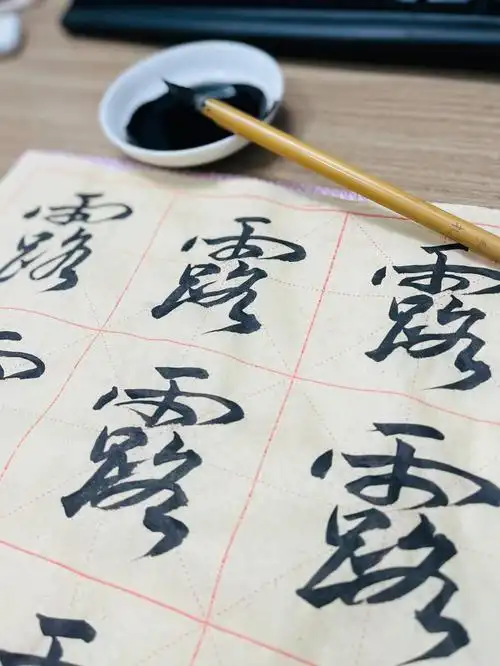 露 露 露
露 露